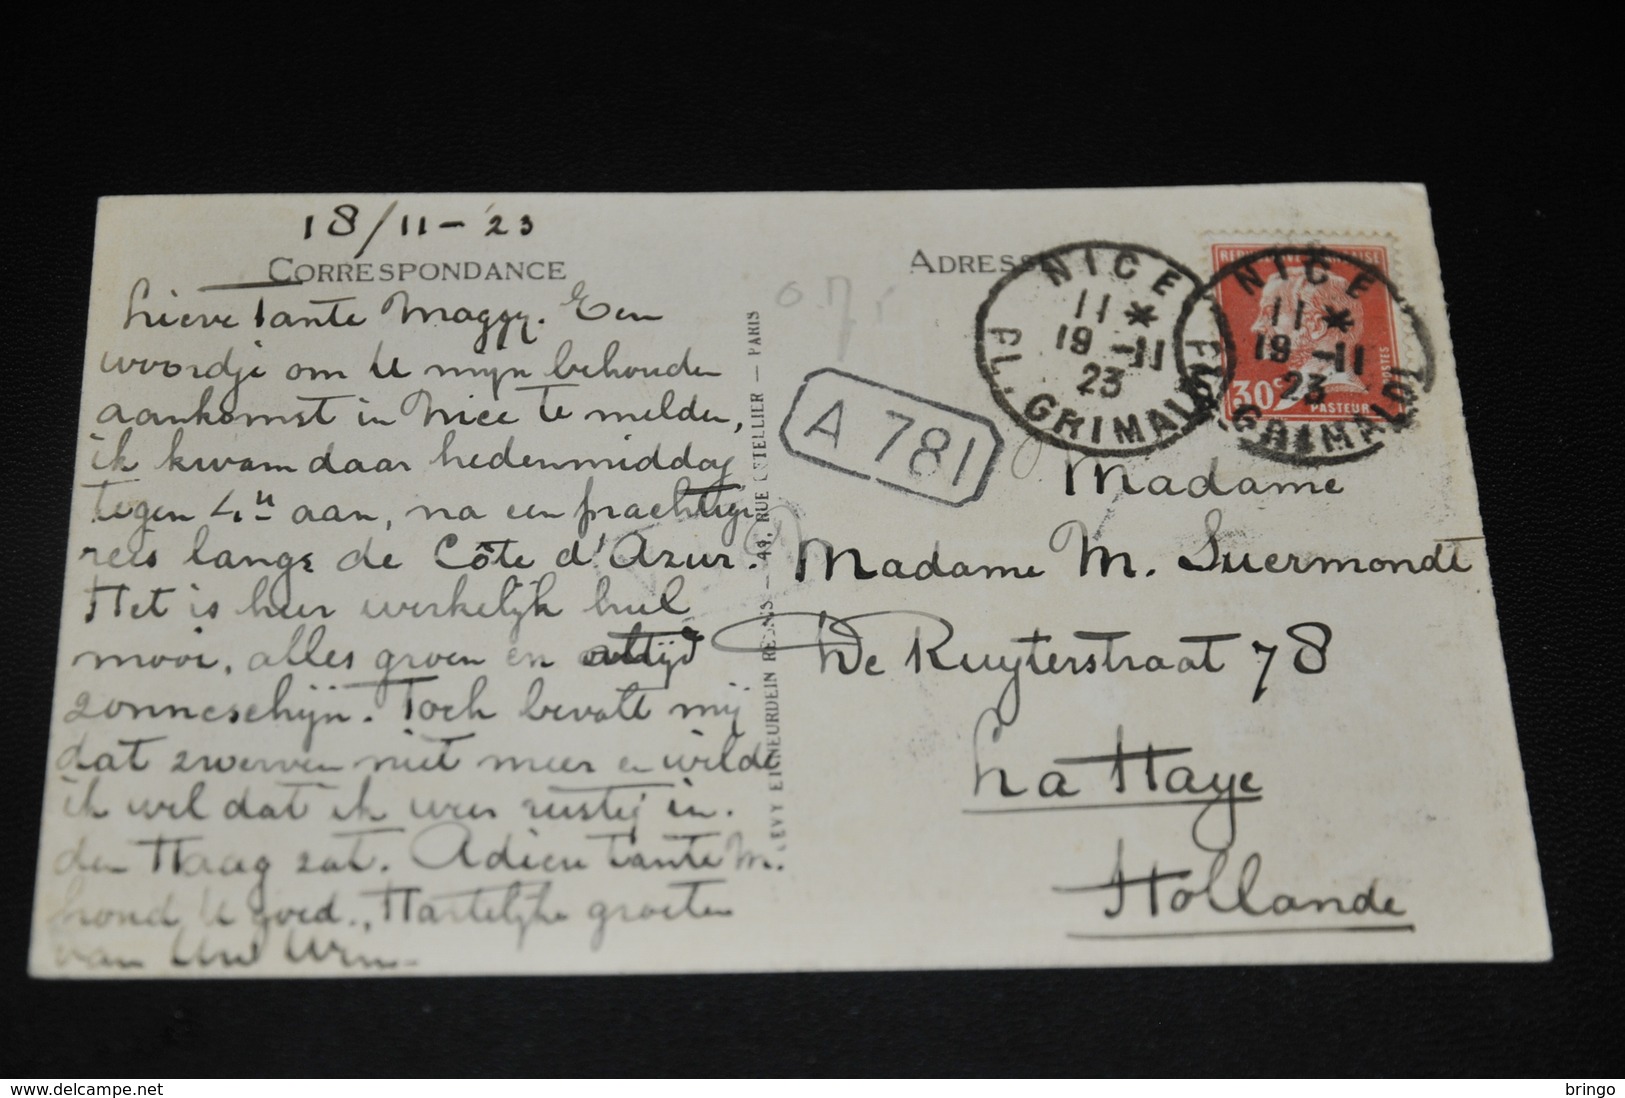 18/11-23
CORRESPONDANCE
Lieve Tante Maggy. Een
woordje om U mijn behouden
aankomst in Nice te melden,
ik kwam daar hedenmiddag
tegen 4u aan, na een prachtige
reis langs de Côte d'Azur.
Het is hier werkelijk heel
mooi, alles groen en altijd
zonneschijn. Toch bevalt mij
dat zwerven niet meer en wilde
ik wel dat ik weer rustig in
den Haag zat. Adieu Tante M.
houd U goed. Hartelijke groeten
van Uw Wim
LEVY ET NEURDEIN REUNIS — 44, RUE LETELLIER — PARIS
ADRESSE
A 781
NICE
11 *
19 -11
23
PL. GRIMALDI
NICE
11 *
19 -11
23
PL. GRIMALDI
REPUBLIQUE FRANÇAISE
30c
POSTES
PASTEUR
Madame
Madame M. Suermondt
De Ruyterstraat 78
La Haye
Hollande
bringo
www.delcampe.net